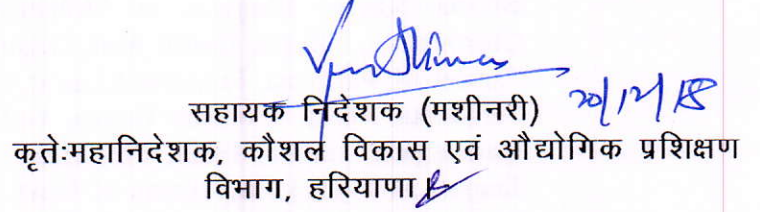 सहायक निदेशक (मशीनरी) 20/12/18
कृतेःमहानिदेशक, कौशल विकास एवं औद्योगिक प्रशिक्षण
विभाग, हरियाणा।